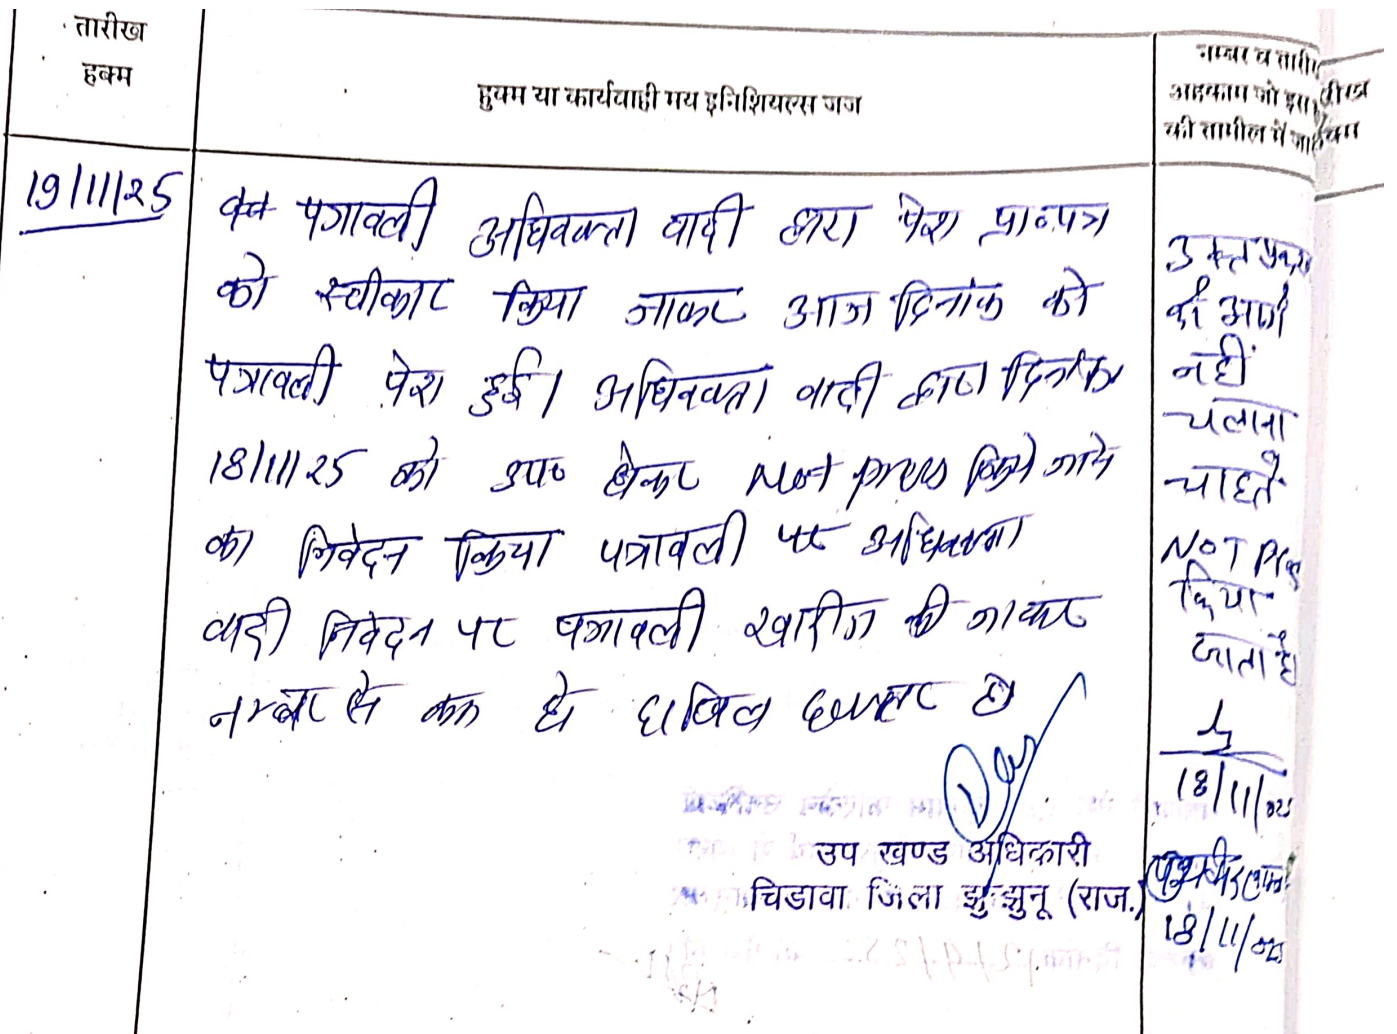 तारीख
हुक्म
हुक्म या कार्यवाही मय इनिशियल्स जज
नम्बर व तारीख
अहकाम जो इस
की तामील में जारी
19/11/25
पत्रावली अधिवक्ता वादी द्वारा पेश प्रा०पत्र
को स्वीकार किया जाकर आज दिनांक को
पत्रावली पेश हुई। अधिवक्ता वादी द्वारा दिनांक
18/11/25 को उप० होकर Not press किये जाने
का निवेदन किया पत्रावली पर अधिवक्ता
वादी निवेदन पर पत्रावली खारीज की जाकर
नम्बर से कम हो दाखिल दफ्तर हो
उप खण्ड अधिकारी
चिडावा जिला झुन्झुनू (राज.)
उक्त
को आगे
नहीं
चलाना
चाहते
NOT Press
किया
जाता है
18/11/025
18/11/025